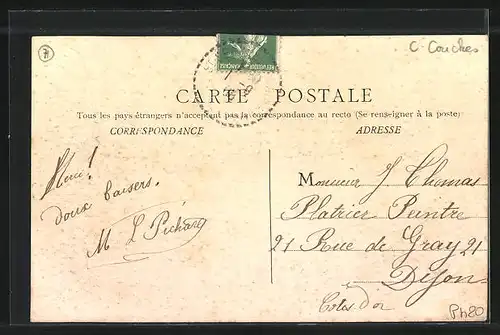 C. Couches
REPUBLIQUE FRANÇAISE
CARTE POSTALE
Tous les pays étrangers n'acceptent pas la correspondance au recto (Se renseigner à la poste)
CORRESPONDANCE
ADRESSE
doux baisers.
M L Pichard
Monsieur J Thomas
Platrier Peintre
21 Rue de Gray 21
Dijon
Côte d'or
Ph20